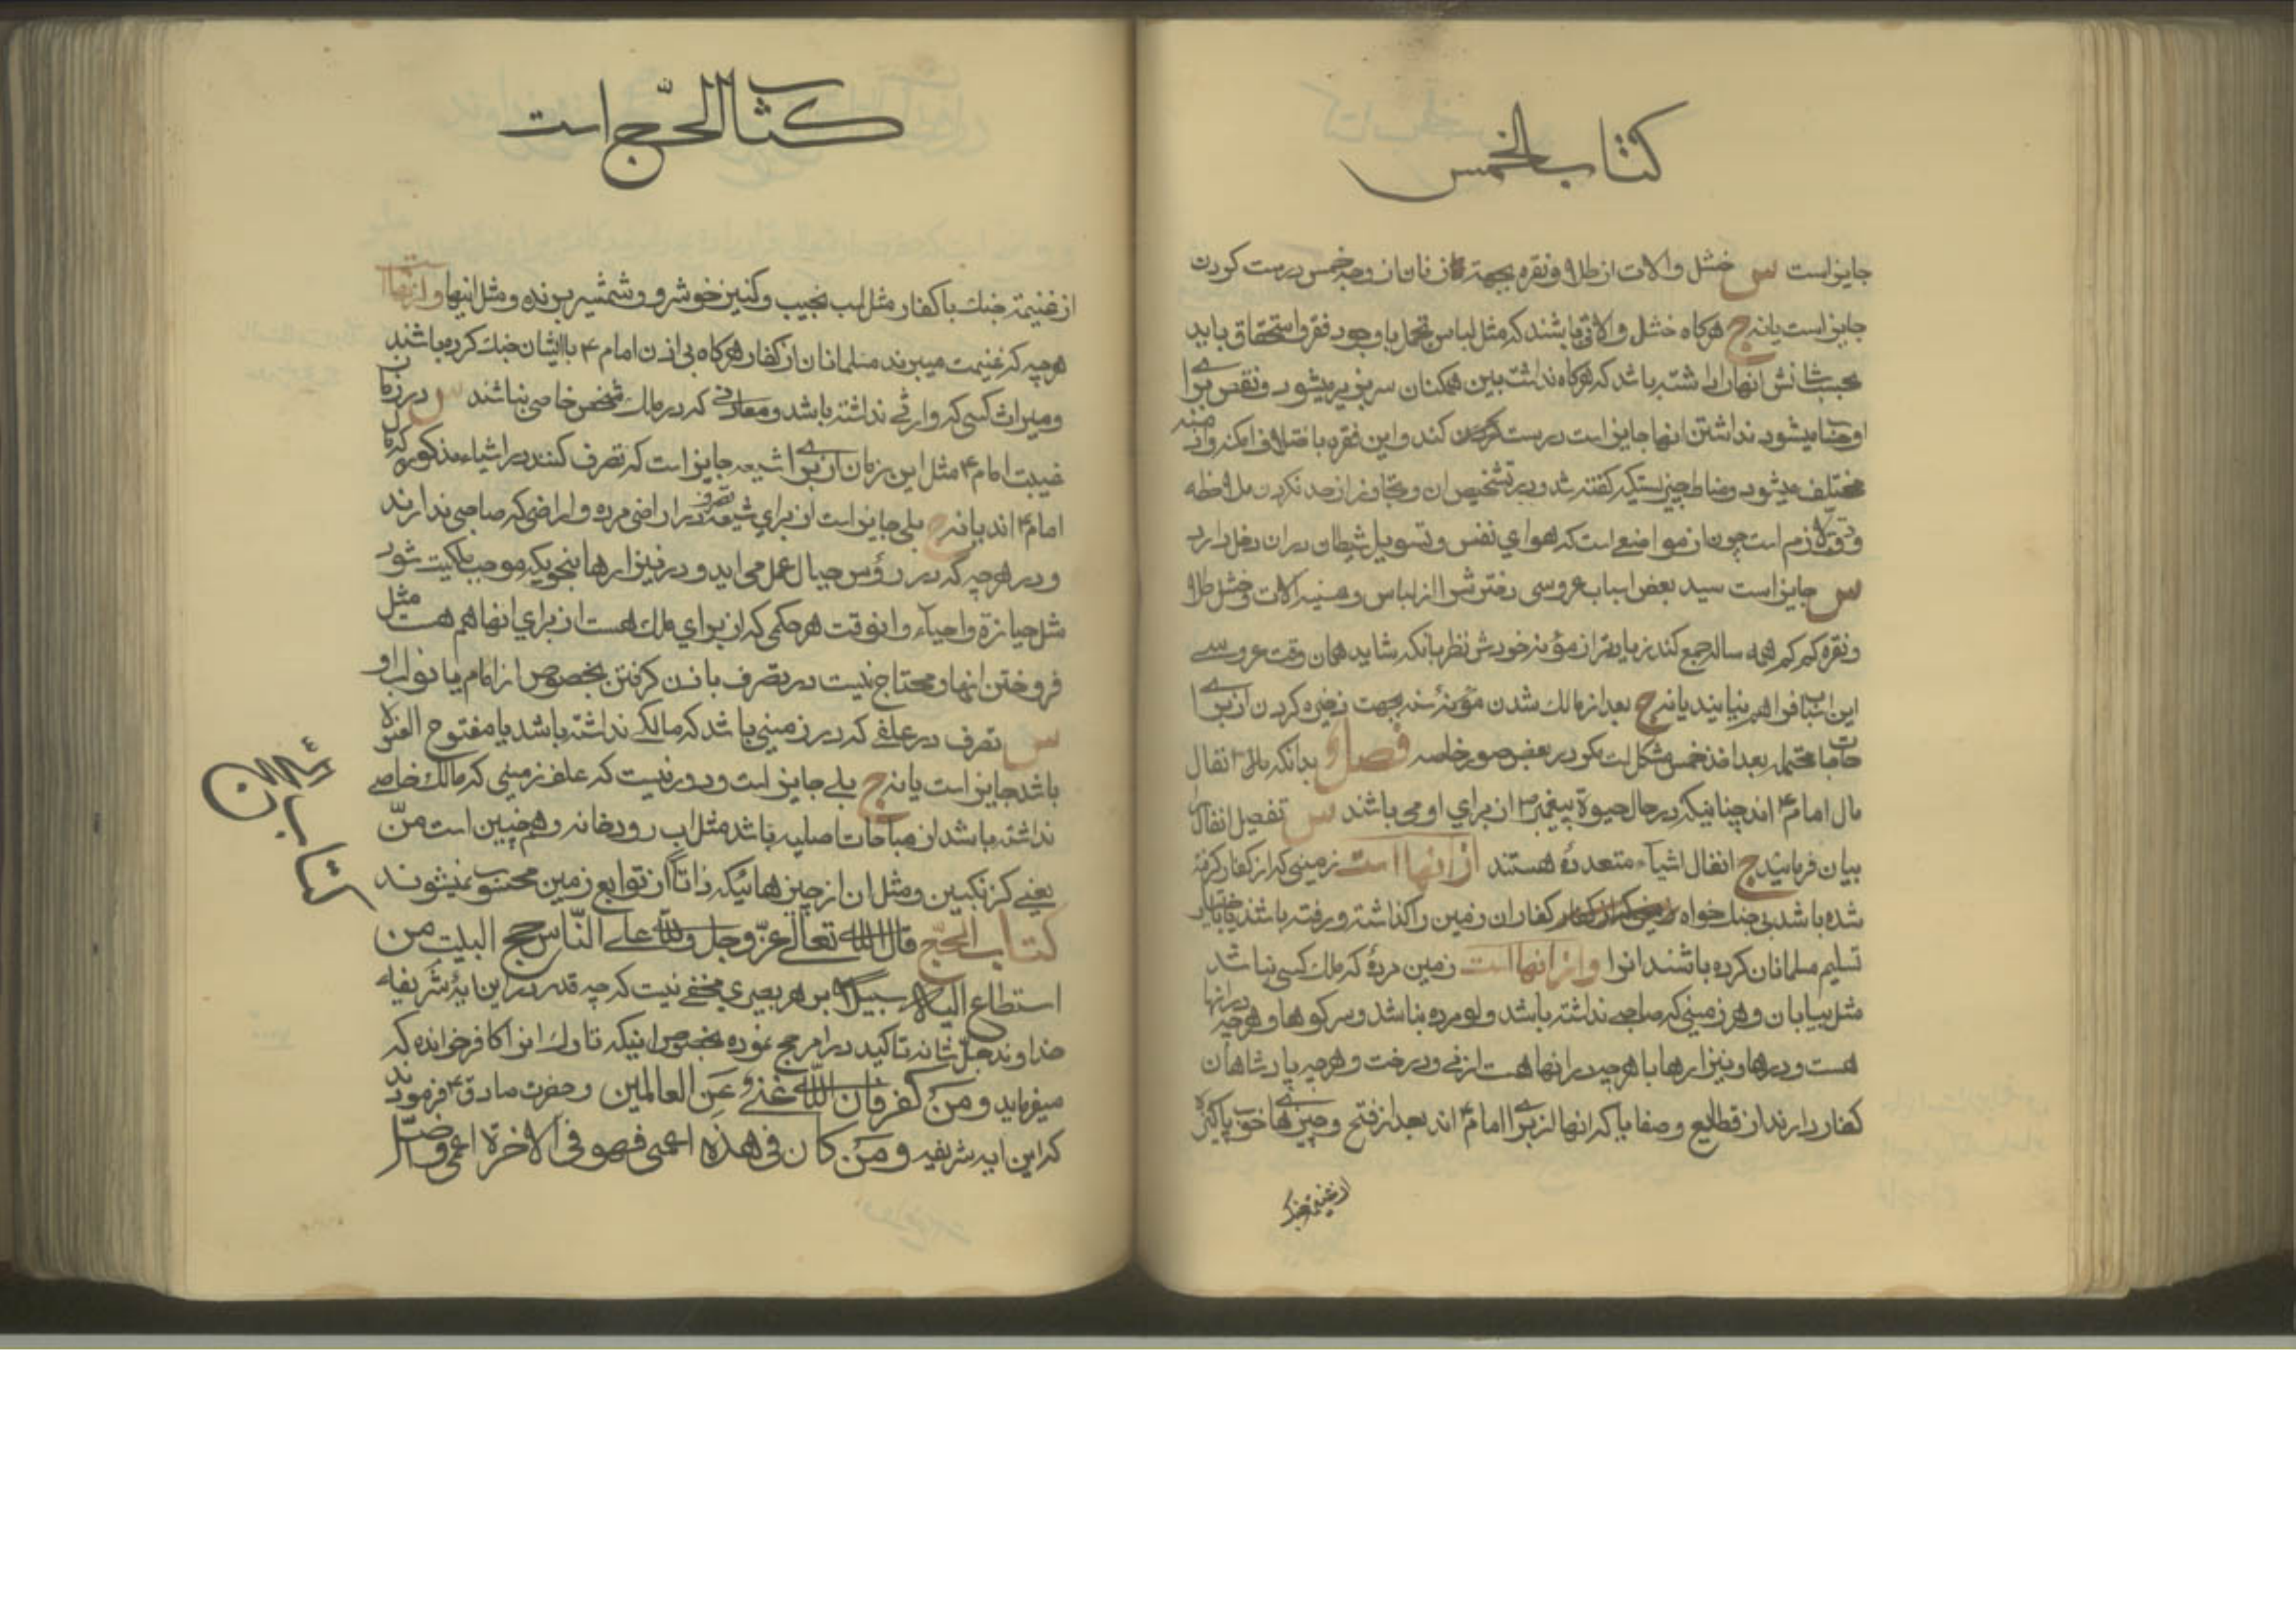 كتاب الخمس
جایز است س خشل و الات از طلا و نقره بجهة زنان از وجه خمس درست کردن
جایز است یا نه ج هرکاه خشل و الاتی باشند که مثل لباس تجمل با وجود فقر و استحقاق باید
بحسب شانش انها را داشته باشد که هرکاه نداشت بین همکنان سر بزیر میشود و نقص برای
او حسنا میشود نداشتن انها جایز است درست کند و این فقره باختلاف امکنه و ازمنه
مختلف میشود و مناط چیزیستکه کفته شد و در تشخیص ان و تجاوز از حد نکردن ملاحظه
و دقت لازم است چون از مواضعی است که هوای نفس و تسویل شیطان در ان دخل دارد
س جایز است سید بعض اسباب عروسی دخترش را از لباس و الات و خشل طلا
و نقره کم کم همه ساله جمع کند زیادتر از مؤنه خودش نظر بانکه شاید همان وقت عروسی
این اسباب فراهم نیایند یا نه ج بعد از مالک شدن مؤنه سنه بجهت ذخیره کردن از برای
حاجات محتمله بعد اخذ خمس مشکل است مکر در بعض صور خاصه فصل و بدانکه انفال
مال امام ع اند چنانیکه در حال حیوة پیغمبر ص از برای او می باشند س تفصیل انفال را
بیان فرمائید ج انفال اشیاء متعدده هستند از انها است زمینی که از کفار کرفته
شده باشد بی جنک خواه کفار ان زمین را کذاشته و رفته باشند یا باختیار
تسلیم مسلمانان کرده باشند انرا و از انها است زمین مرده که ملک کسی نباشد
مثل بیابان و هر زمینی که صاحبی نداشته باشد و لو مرده نباشد و سر کوهها و هرچه در انها
هست و درها و نیزارها با هرچه در انها هست از نی و درخت و هرچه پادشاهان
کفار دارند از قطایع و صفایا که انها از برای امام ع اند بعد از فتح و چیزهای خوب پاکیزه
از غنیمة جنک
كتاب الحج است
از غنیمة جنك با کفار مثل اسب نجیب و کنیز خوشرو و شمشیر برنده و مثل اینها و از انها است
هرچه که غنیمت میبرند مسلمانان از کفار هرکاه بی اذن امام ع با ایشان جنك کرده باشند
و میراث کسی که وارثی نداشته باشد و معادنی که در مالك شخص خاصی نباشند س در زمان
غیبت امام ع مثل این زمان از برای شیعه جایز است که تصرف کنند در اشیاء مذکوره که مال
امام ع اند یا نه ج بلی جایز است از برای شیعه تصرف در اراضی مرده و اراضی که صاحبی ندارند
و در هرچه که در رؤس جبال عمل می اید و در نیزارها بنحویکه موجب ملکیت شود
مثل حیازة و احیاء و انوقت هر حکمی که از برای ملك هست از برای انها هم هست مثل
فروختن انها و محتاج نیست در تصرف باذن کرفتن بخصوص از امام یا نواب او
س تصرف در علفی که در زمینی باشد که مالکی نداشته باشد یا مفتوح العنوة
باشد جایز است یا نه ج بلی جایز است و دور نیست که علف زمینی که مالك خاصی
نداشته باشد از مباحات اصلیه باشد مثل اب رودخانه و همچنین است منّ
یعنی کزنکبین و مثل ان از چیزهائیکه ذاتاً از توابع زمین محسوب نمیشوند
كتاب الحجّ قال الله تعالى عزّ وجل ولله على النّاس حج البيت من
استطاع اليه سبيلا بر هر بصیری مخفی نیست که چه قدر در این ایهٔ شریفه
خداوند جلّ شانه تاکید در امر حج نموده بخصوص اینکه تارك انرا کافر خوانده که
میفرماید ومن كفر فان الله غنيّ عن العالمين و حضرت صادق ع فرمودند
که این ایه شریفه ومن كان في هذه اعمى فهو في الاخرة اعمى واضلّ